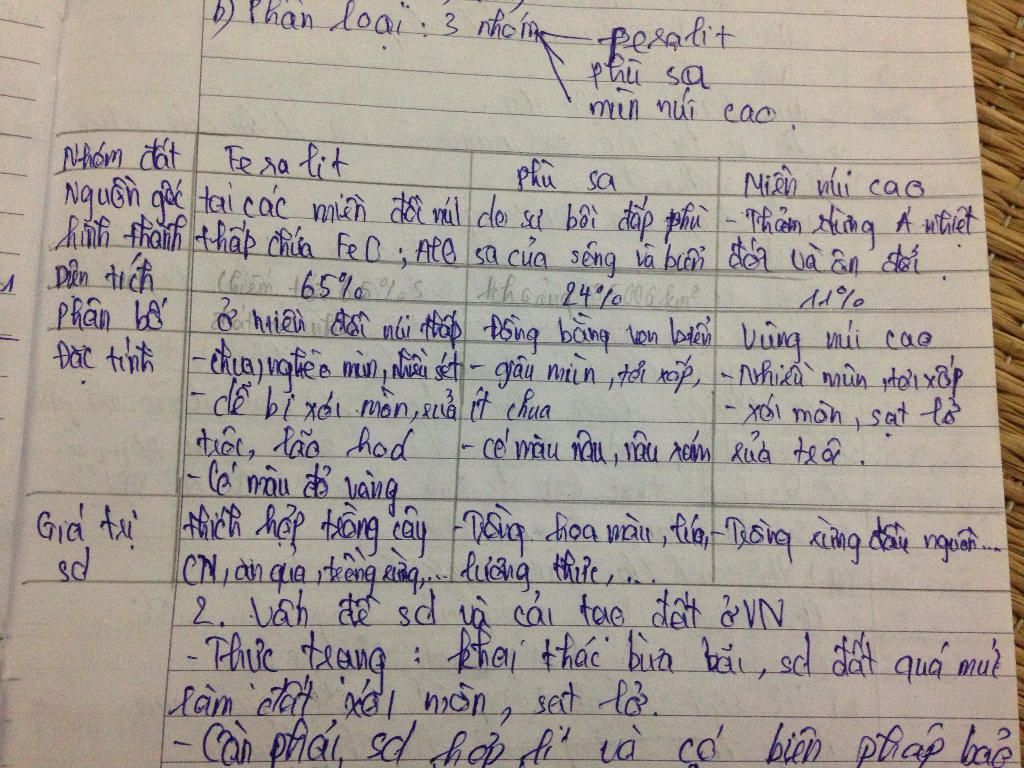 b) Phân loại : 3 nhóm feralit
phù sa
mùn núi cao.
Nhóm đất Feralit phù sa Miền núi cao
Nguồn gốc tại các miền đồi núi do sự bồi đắp phù - Thảm rừng Á nhiệt
hình thành thấp chứa FeO ; AlO sa của sông và biển đới và ôn đới.
Diện tích 65% 24% 11%
phân bố ở miền đồi núi thấp Đồng bằng ven biển Vùng núi cao
Đặc tính - chua, nghèo mùn, nhiều sét - giàu mùn, tơi xốp, - Nhiều mùn, tơi xốp
- dễ bị xói mòn, rửa ít chua - xói mòn, sạt lở
trôi, lão hoá - có màu nâu, nâu xám rửa trôi.
- Có màu đỏ vàng
Giá trị thích hợp trồng cây - Trồng hoa màu, lúa, - Trồng rừng đầu nguồn...
sd CN, ăn quả, trồng rừng,... lương thực, ...
2. Vấn đề sd và cải tạo đất ở VN
- Thực trạng : khai thác bừa bãi, sd đất quá mức
làm đất xói mòn, sạt lở.
- Cần phải sd hợp lí và có biện pháp bảo